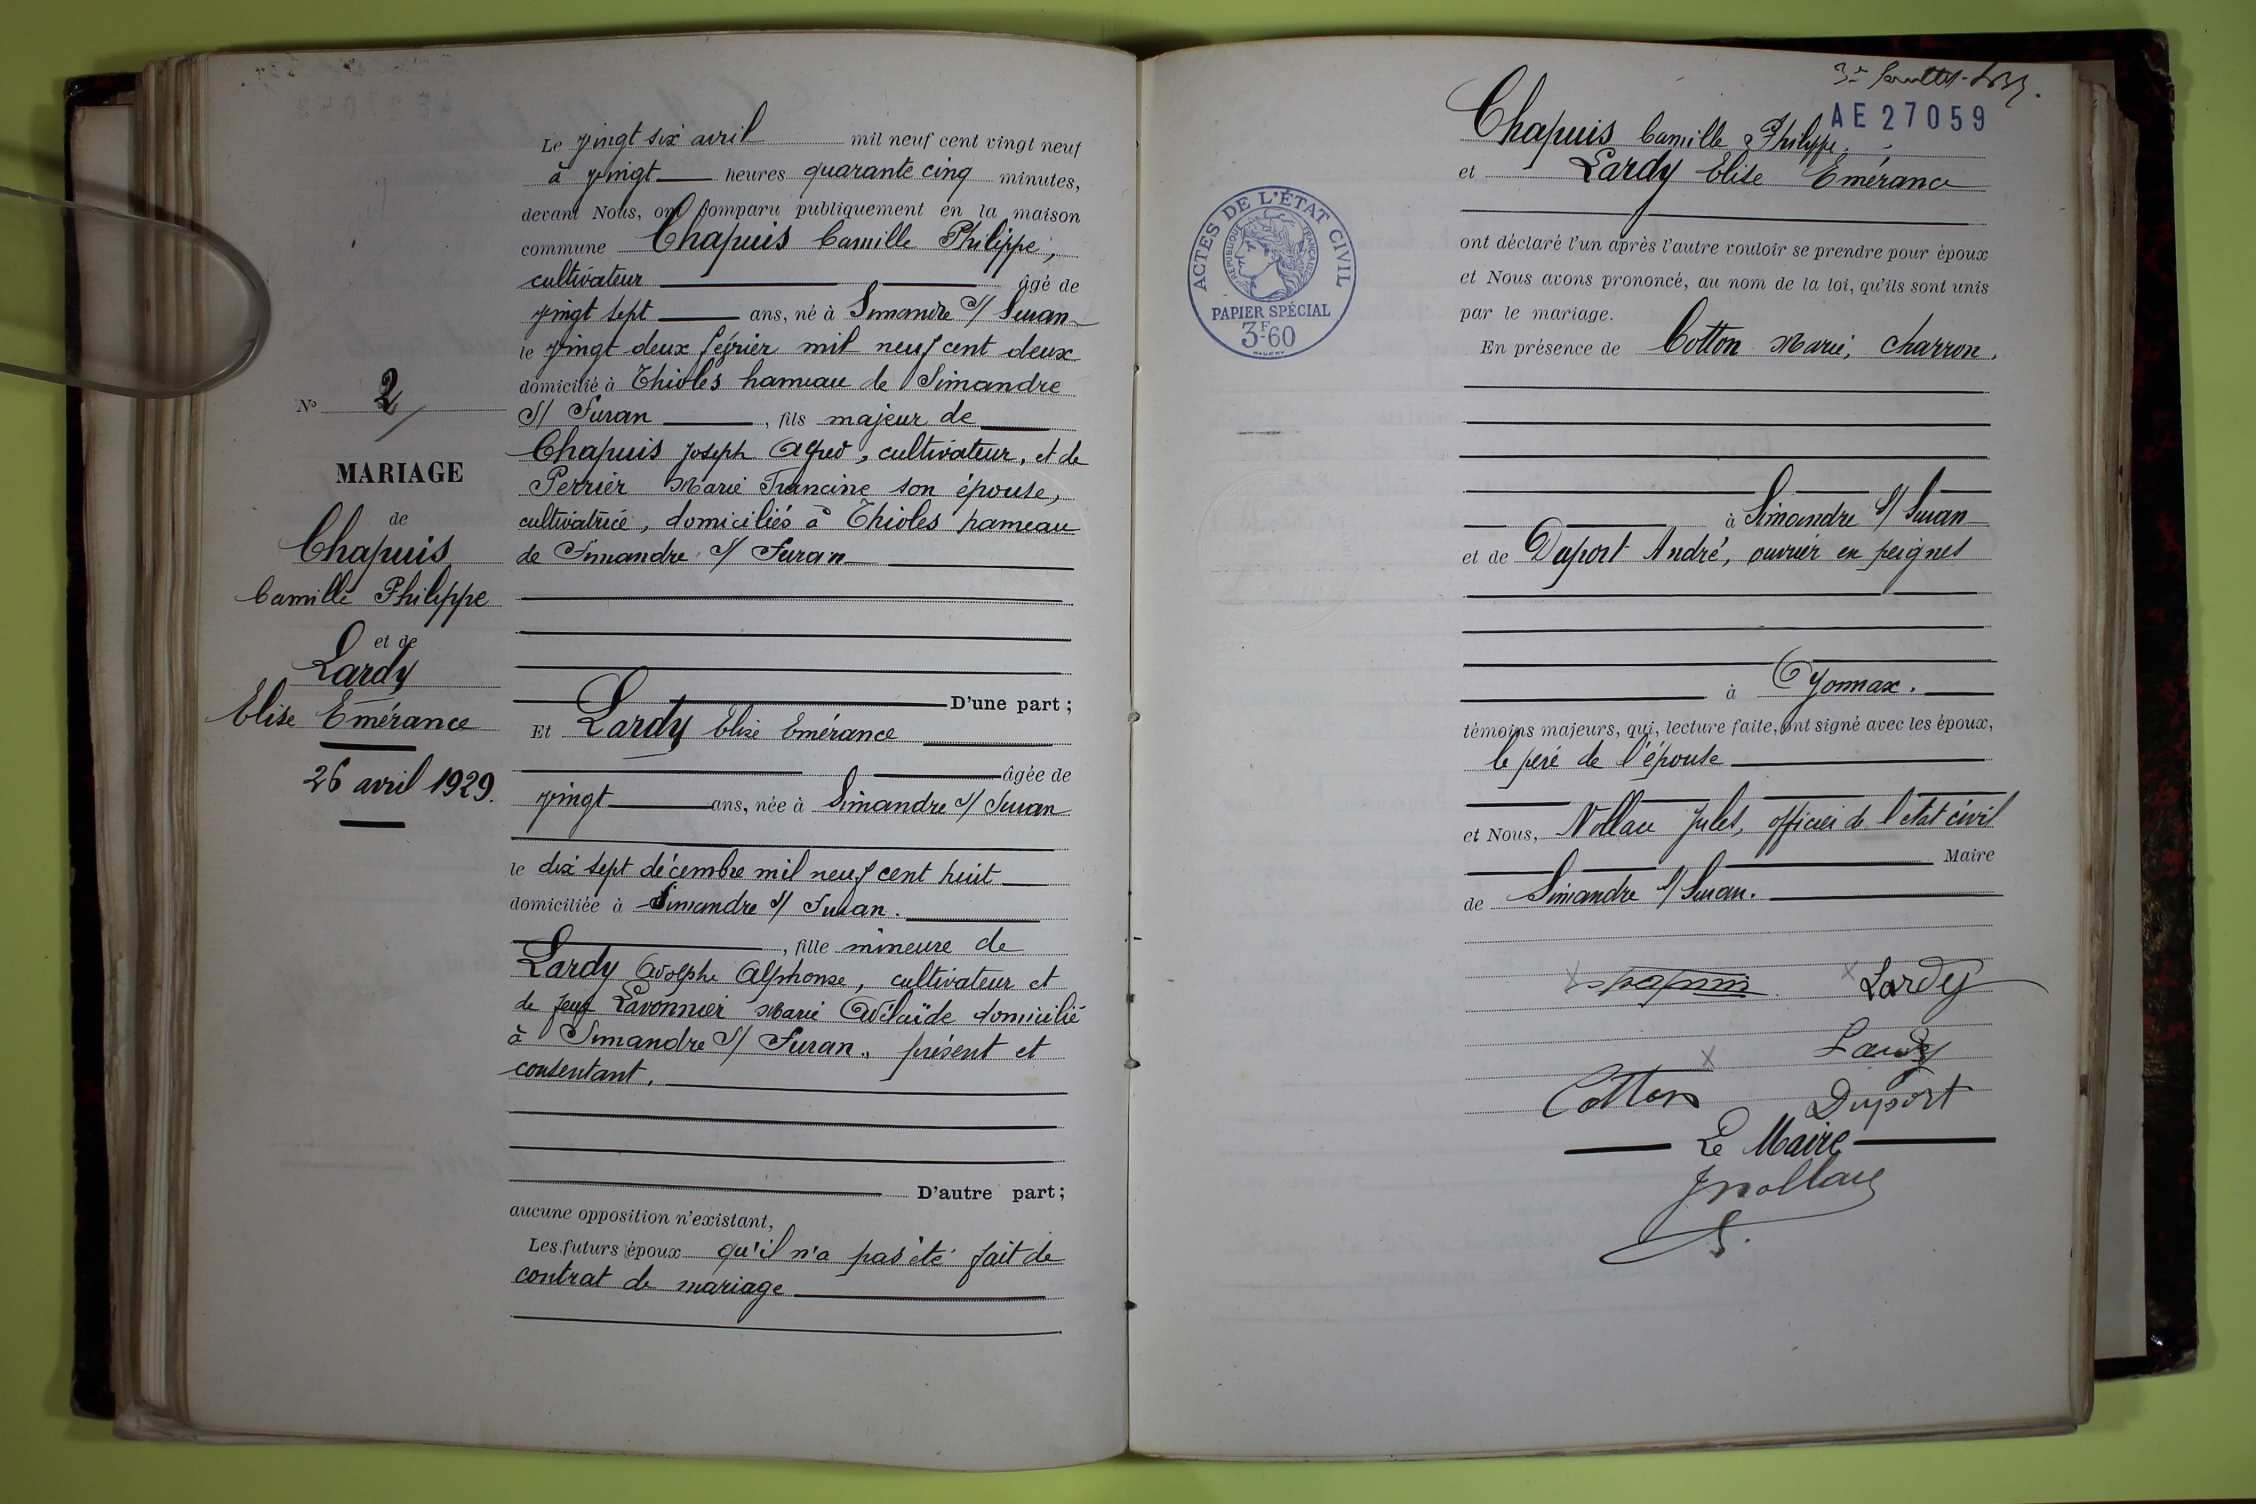 Le vingt six avril mil neuf cent vingt neuf
à vingt heures quarante cinq minutes,
devant Nous, ont comparu publiquement en la maison
commune Chapuis Camille Philippe,
cultivateur âgé de
vingt sept ans, né à Simandre s/ Suran
le vingt deux février mil neuf cent deux
domicilié à Thioles hameau de Simandre
s/ Suran, fils majeur de
Chapuis Joseph Alfred, cultivateur, et de
Perrier Marie Francine son épouse,
cultivatrice, domiciliés à Thioles hameau
de Simandre s/ Suran
D'une part ;
Et Lardy Elise Emérance
âgée de
vingt ans, née à Simandre s/ Suran
le dix sept décembre mil neuf cent huit
domiciliée à Simandre s/ Suran.
, fille mineure de
Lardy Adolphe Alphonse, cultivateur et
de feue Marie Adélaïde domicilié
à Simandre s/ Suran, présent et
consentant.
D'autre part ;
aucune opposition n'existant,
Les futurs époux qu'il n'a pas été fait de
contrat de mariage
No 2
MARIAGE
de
Chapuis
Camille Philippe
et de
Lardy
Elise Emérance
26 avril 1929.
AE 27059
Chapuis Camille Philippe
et Lardy Elise Emérance
ont déclaré l'un après l'autre vouloir se prendre pour époux
et Nous avons prononcé, au nom de la loi, qu'ils sont unis
par le mariage.
En présence de Cotton Marie, charron,
à Simandre s/ Suran
et de Duport André, ouvrier en peignes
à Oyonnax.
témoins majeurs, qui, lecture faite, ont signé avec les époux,
le père de l'épouse
et Nous, Nollau Jules, officier de l'état civil
Maire
de Simandre s/ Suran.
Chapuis Lardy
Lardy
Cotton Duport
Le Maire
JNollau
ACTES DE L'ÉTAT CIVIL
RÉPUBLIQUE FRANÇAISE
PAPIER SPÉCIAL
3F60